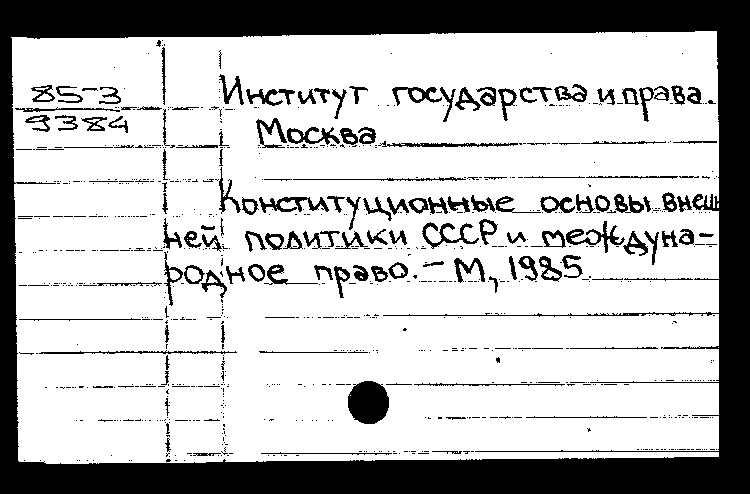 85-3
9384
Институт государства и права.
Москва.
Конституционные основы внеш
ней политики СССР и междуна-
родное право. - М, 1985